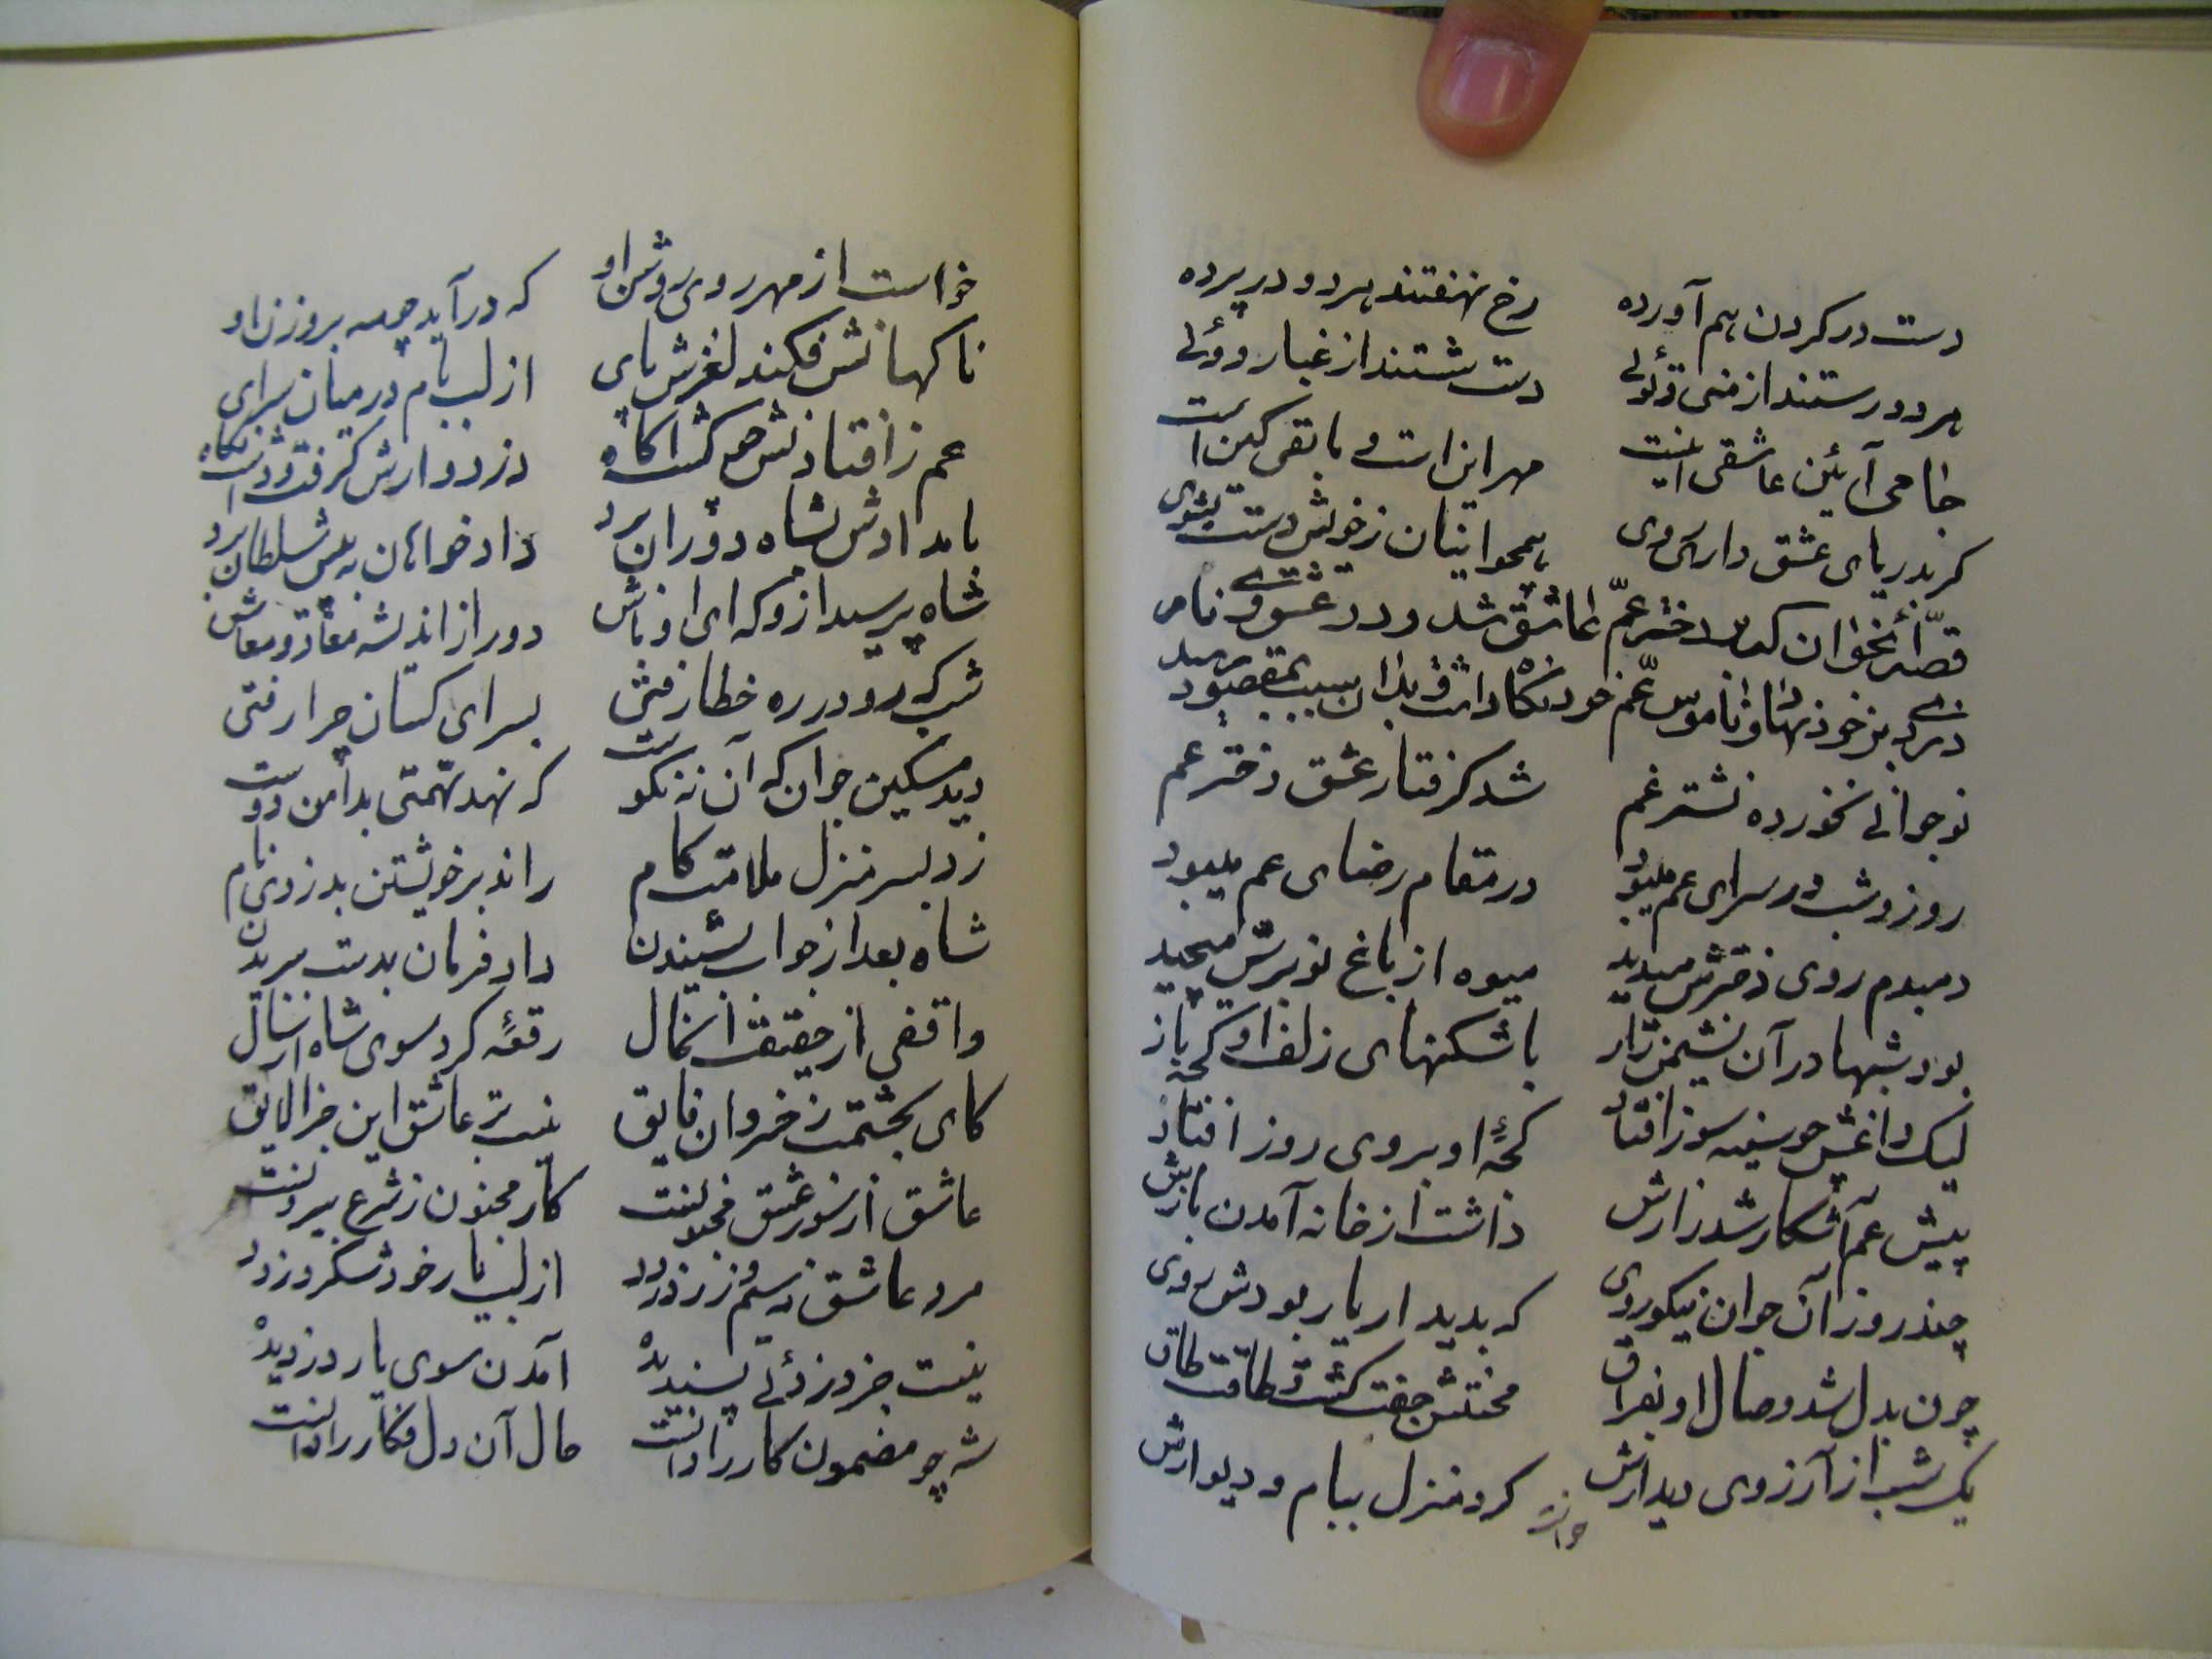 دست در کردن بهم آورده رخ نهفتند هر دو در پرده
هر دو رستند از منی و توئی دست شستند از غبار دوئی
جامی آئین عاشقی اینست مهر اینست و باقی کین است
کر بدریای عشق داری روی همچو اینان ز خویش دست بشوی
قصّهٔ آن جوان که بر دختر عمّ عاشق شد و در عشق وی نام
دزدی بر خود نهاد و ناموس عمّ خود نکاه داشت و بدان سبب بمقصود رسید
نوجوانی نخورده نشتر غم شد کرفتار عشق دختر عم
روز و شب در سرای عم میبود در مقام رضای عم میبود
دمبدم روی دخترش میدید میوه از باغ نوبرش میچید
بود شبها در آن نشیمن راز با شکنهای زلف او
لیک داغش چو سینه سوز افتاد او بروی روز افتاد
پیش عم آشکار شد رازش داشت از خانه آمدن بازش
چند روز آن جوان نیکوروی که بدیدار یار بودش روی
چون بدل شد وصال او بفراق محنتش جفت کشت و طاقت طاق
یک شب از آرزوی دیدارش کرد منزل ببام و دیوارش
خواست
خواست از مهر روی روشن او که در آید چو مه بروزن او
ناکهانش فکند لغزش پای از لب بام در میان سرای
عم ز افتادنش چو کشت آکاه دزد وارش کرفت و داشت نکاه
بامدادش بشاه دوران برد داد خواهان به پیش سلطان برد
شاه پرسید ازو که ای اوباش دور از اندیشه معاد و معاش
شب که رو در ره خطا رفتی بسرای کسان چرا رفتی
دید مسکین جوان که آن نه نکوست که نهد تهمتی بدامن دوست
زد بسر منزل ملامت کام راند بر خویشتن بدزدی نام
شاه بعد از جواب بشنیدن داد فرمان بدست ببریدن
واقفی از حقیقت آنحال رقعهٔ کرد سوی شاه ارسال
کای بحشمت ز خسروان فایق نیست عاشق این جزا لایق
عاشق از شور عشق مجنونست کار مجنون ز شرع بیرونست
مرد عاشق نه سیم و زر دزدد از لب یار خود شکر دزدد
نیست جز دزدئی پسندیده آمدن سوی یار دزدیده
شه چو مضمون کار را دانست حال آن دل فکار را دانست